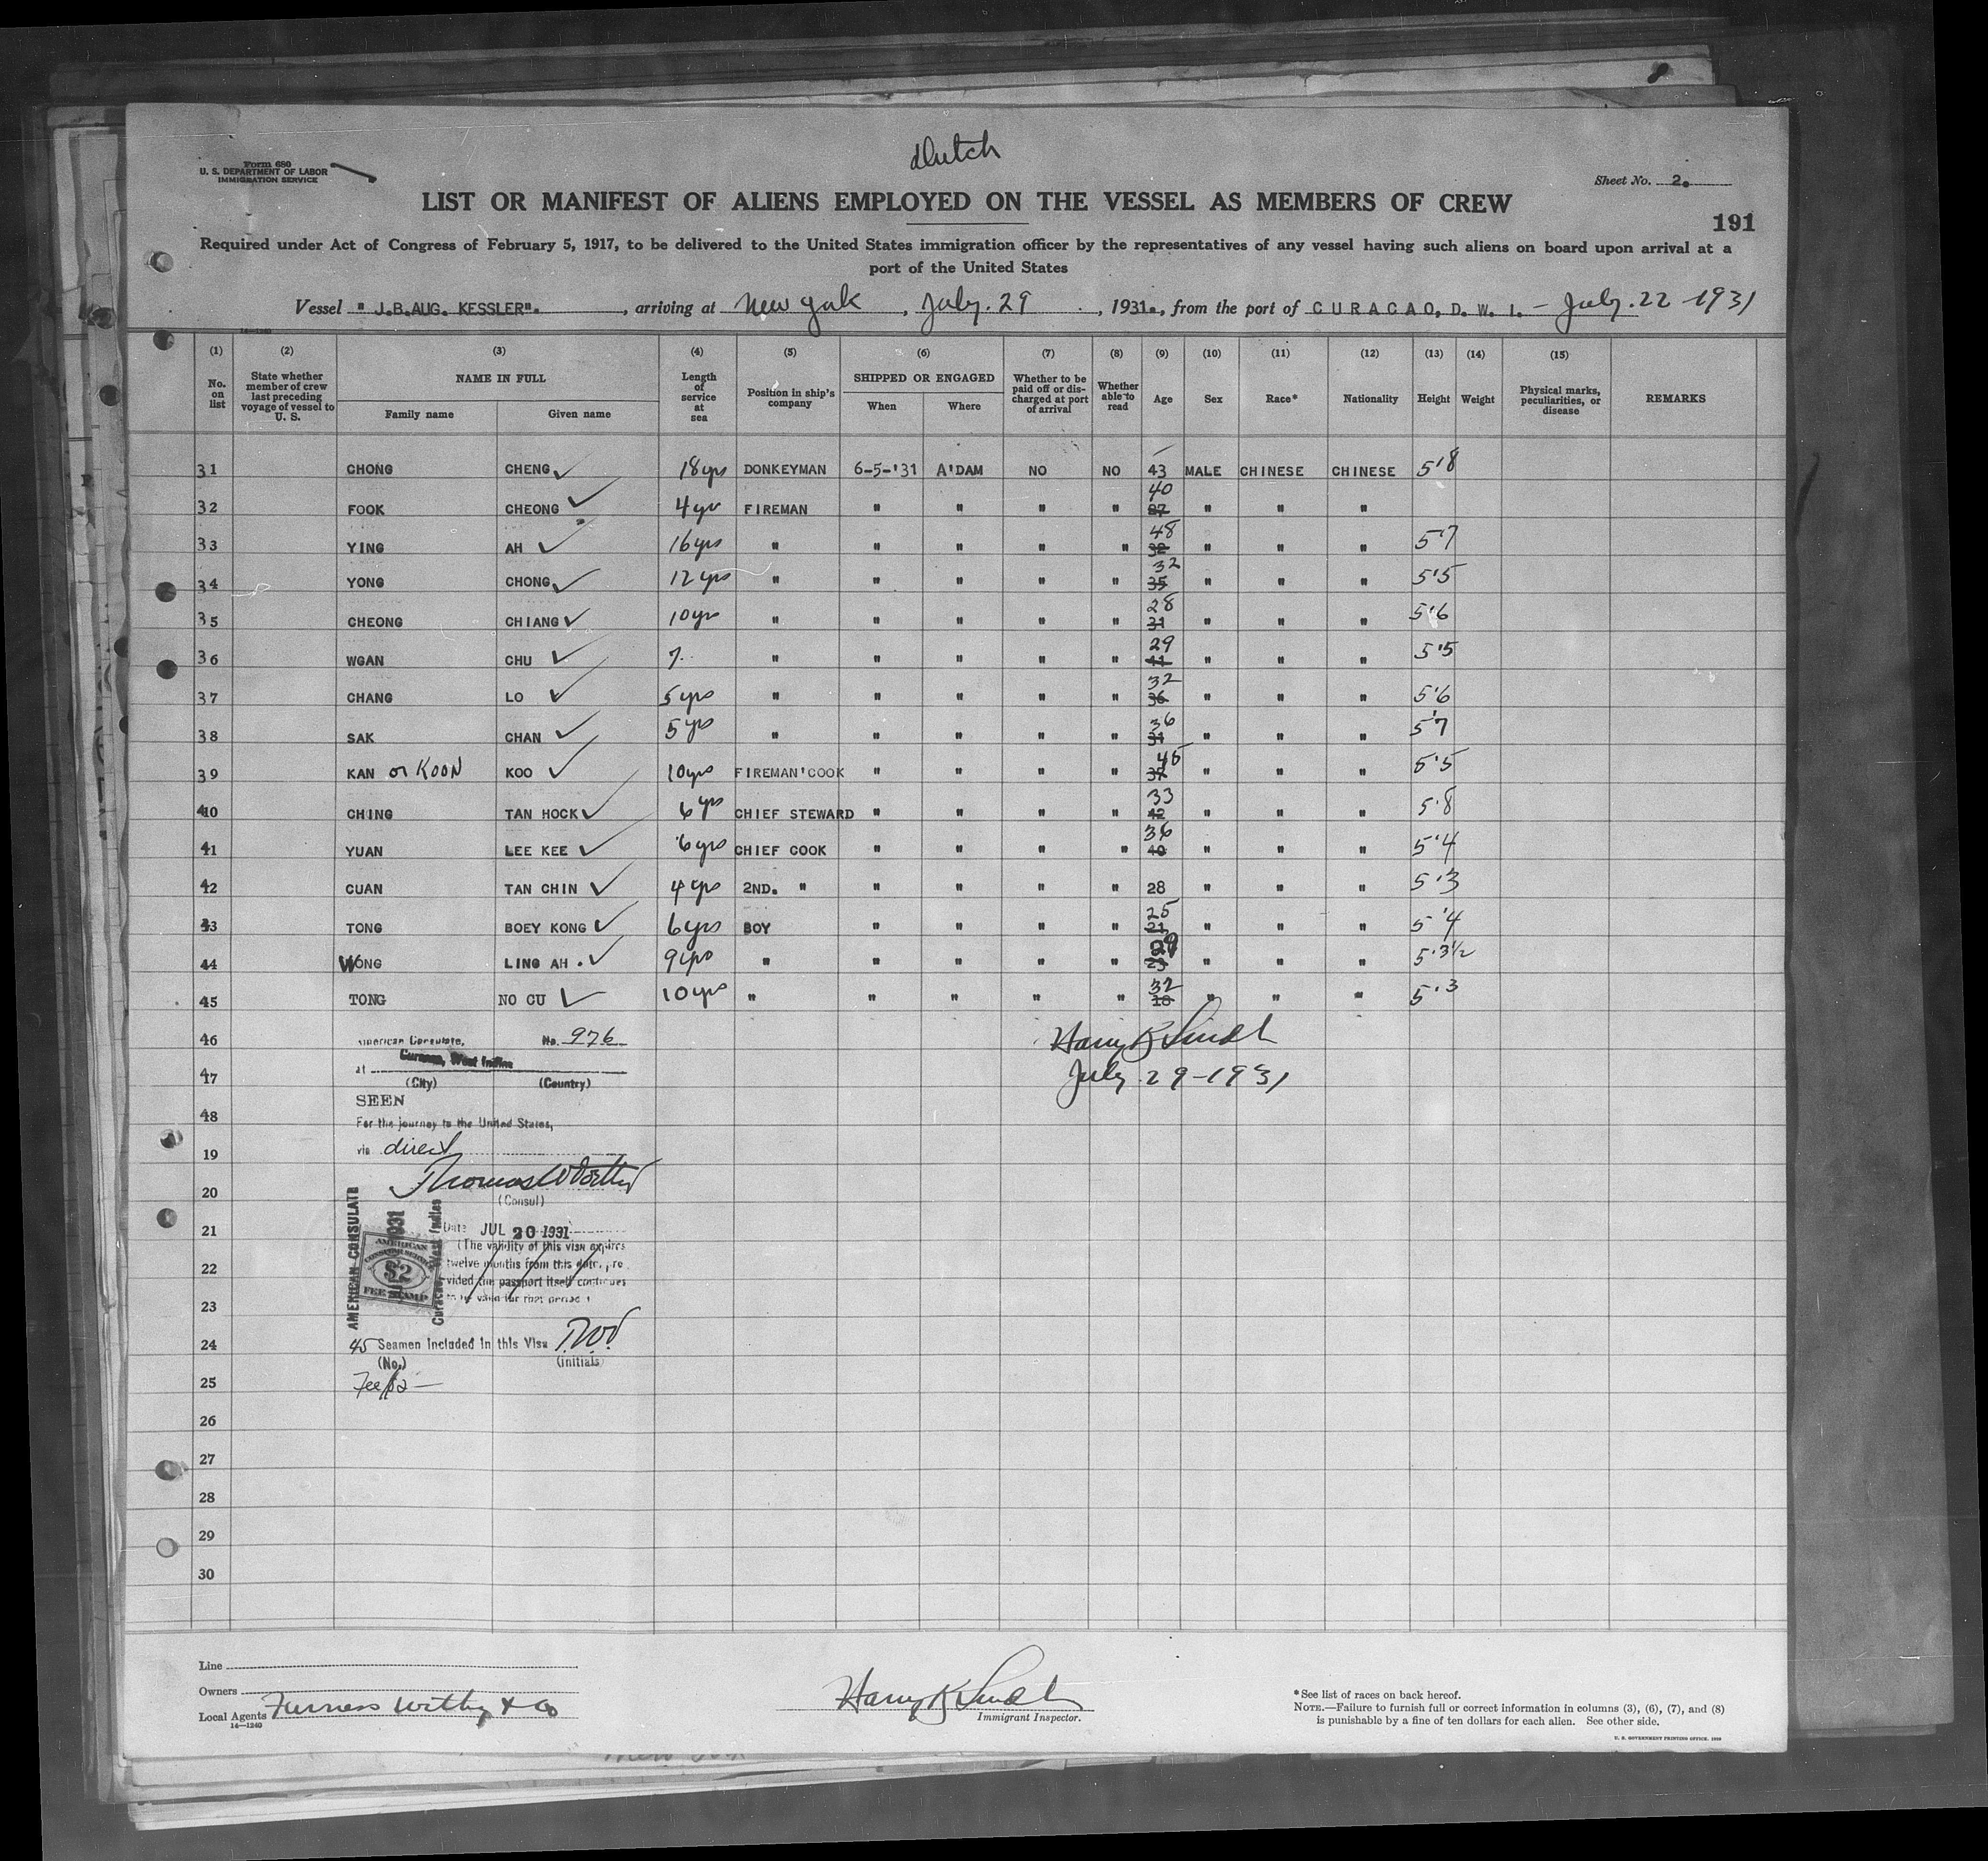 Dutch
Form 680
U. S. DEPARTMENT OF LABOR
IMMIGRATION SERVICE
Sheet No. 2.
LIST OR MANIFEST OF ALIENS EMPLOYED ON THE VESSEL AS MEMBERS OF CREW
191
Required under Act of Congress of February 5, 1917, to be delivered to the United States immigration officer by the representatives of any vessel having such aliens on board upon arrival at a
port of the United States
Vessel "J.B.AUG. KESSLER". , arriving at New York , July. 29 , 1931., from the port of CURACAO, D. W. I. - July. 22 - 1931
14-1240
(1) (2) (3) (4) (5) (6) (7) (8) (9) (10) (11) (12) (13) (14) (15)
No. on list State whether member of crew last preceding voyage of vessel to U. S. NAME IN FULL Family name Given name Length of service at sea Position in ship's company SHIPPED OR ENGAGED When Where Whether to be paid off or discharged at port of arrival Whether able to read Age Sex Race* Nationality Height Weight Physical marks, peculiarities, or disease REMARKS
31 CHONG CHENG ✓ 18 yrs DONKEYMAN 6-5-'31 A'DAM NO NO 43 MALE CHINESE CHINESE 5'8
32 FOOK CHEONG ✓ 4 yr FIREMAN " " " " 40 27 " " "
33 YING AH ✓ 16 yrs " " " " " 48 32 " " " 5'7
34 YONG CHONG ✓ 12 yrs " " " " " 32 35 " " " 5'5
35 CHEONG CHIANG ✓ 10 yr " " " " " 28 31 " " " 5'6
36 WGAN CHU ✓ 7. " " " " " 29 41 " " " 5'5
37 CHANG LO ✓ 5 yrs " " " " " 32 36 " " " 5'6
38 SAK CHAN ✓ 5 yrs " " " " " 36 31 " " " 5'7
39 KAN or KOON KOO ✓ 10 yrs FIREMAN'COOK " " " " 45 37 " " " 5'5
40 CHING TAN HOCK ✓ 6 yrs CHIEF STEWARD " " " " 33 42 " " " 5'8
41 YUAN LEE KEE ✓ 6 yrs CHIEF COOK " " " " 36 40 " " " 5'4
42 CUAN TAN CHIN ✓ 4 yrs 2ND. " " " " " 28 " " " 5'3
43 TONG BOEY KONG ✓ 6 yrs BOY " " " " 25 21 " " " 5'4
44 WONG LING AH . ✓ 9 yrs " " " " " 29 23 " " " 5'3½
45 TONG NO CU ✓ 10 yrs " " " " " 32 18 " " " 5'3
46 American Consulate, No. 976
Harry K Sindh
at Curacao, West Indies
47 (City) (Country)
July 29-1931
SEEN
48 For the journey to the United States,
19 via direct
20 Thomas W Worthy
(Consul)
21 Date JUL 20 1931
(The validity of this visa expires
22 twelve months from this date, pro
vided the passport itself continues
23 to be valid for that period)
AMERICAN CONSULATE
Curacao, West Indies
1931
AMERICAN
CONSULAR SERVICE
$2
FEE STAMP
24 45 Seamen Included in this Visa
(No.) (Initials)
25 Fee $2 —
26
27
28
29
30
Line
Owners
Local Agents Furness Withy & Co
14-1240
Harry K Sindh
Immigrant Inspector.
*See list of races on back hereof.
NOTE.—Failure to furnish full or correct information in columns (3), (6), (7), and (8)
is punishable by a fine of ten dollars for each alien. See other side.
U. S. GOVERNMENT PRINTING OFFICE. 1930